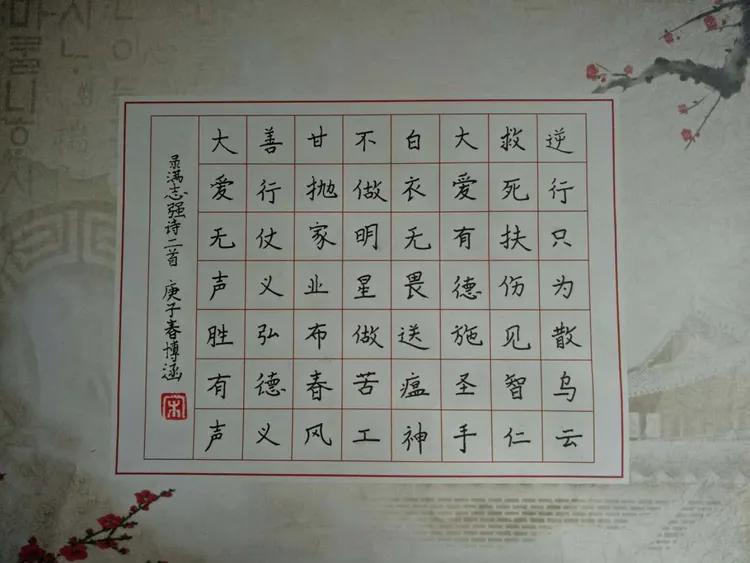 逆行只为散乌云
救死扶伤见智仁
大爱有德施圣手
白衣无畏送瘟神
不做明星做苦工
甘抛家业布春风
善行仗义弘德义
大爱无声胜有声
录满志强诗二首 庚子春博涵